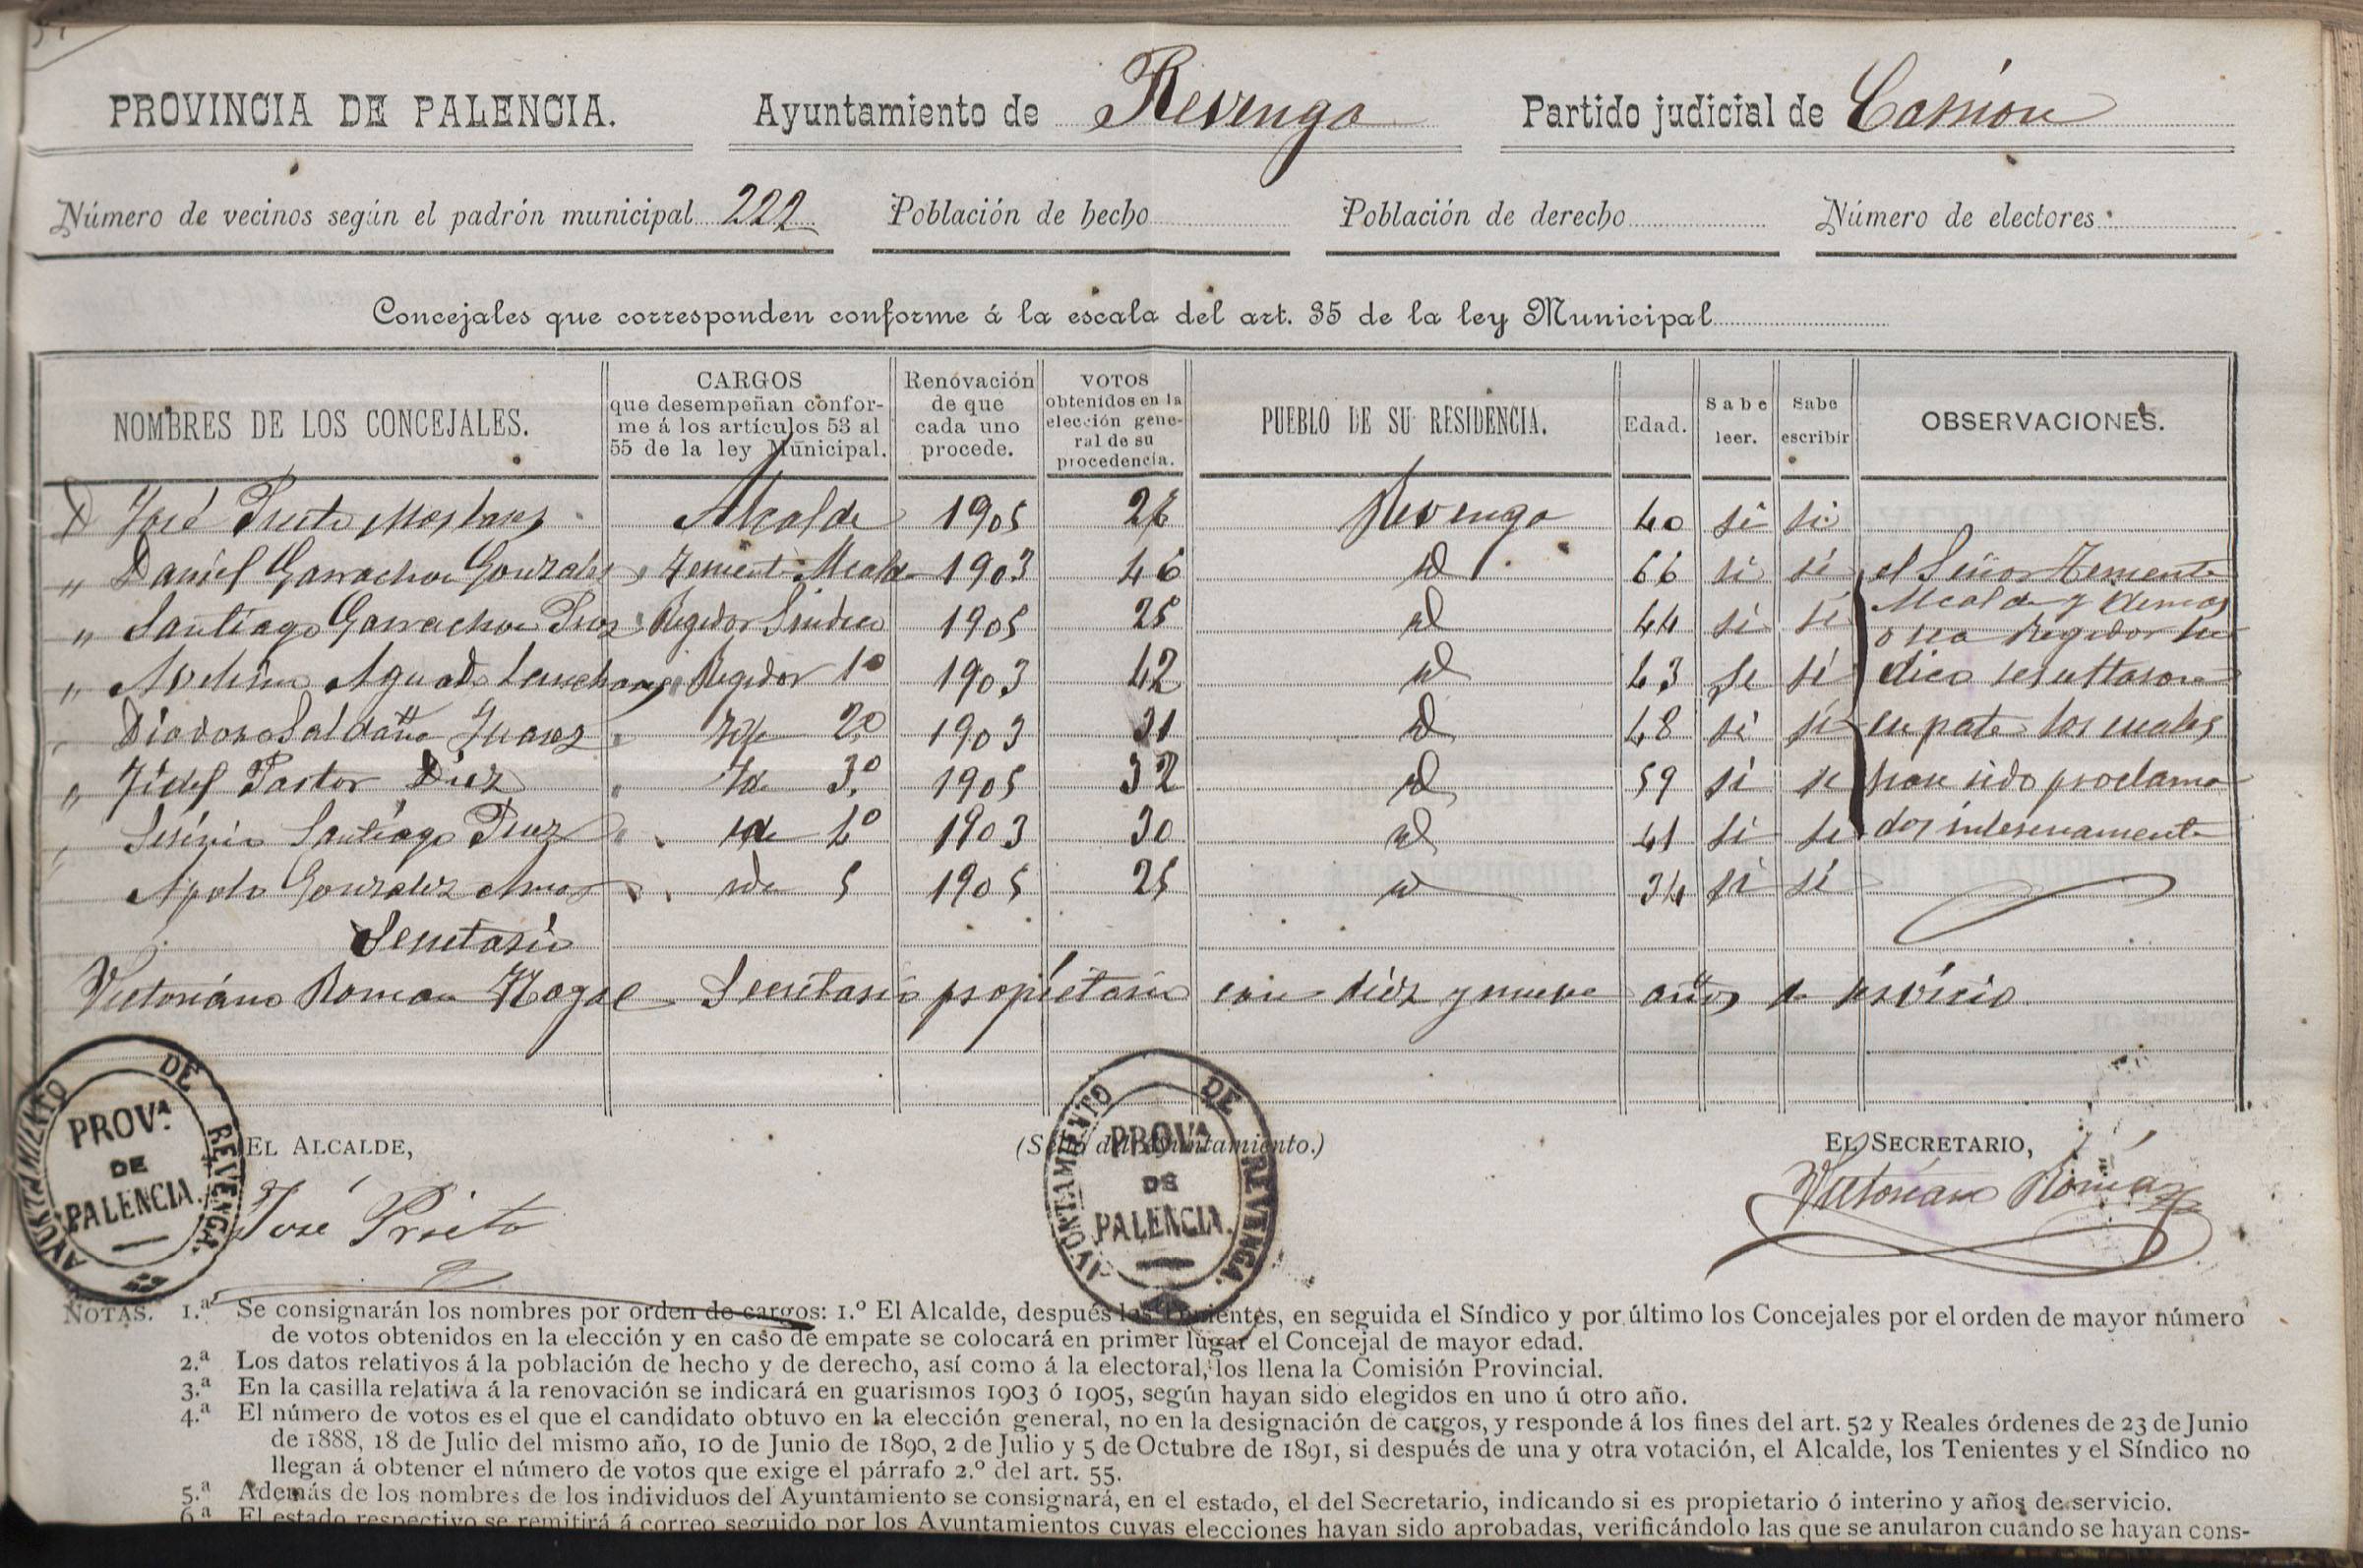 PROVINCIA DE PALENCIA. Ayuntamiento de Revenga Partido judicial de Carrión
Número de vecinos según el padrón municipal 222 Población de hecho Población de derecho Número de electores
Concejales que corresponden conforme á la escala del art. 35 de la ley Municipal
NOMBRES DE LOS CONCEJALES. CARGOS que desempeñan conforme á los artículos 53 al 55 de la ley Municipal. Renovación de que cada uno procede. VOTOS obtenidos en la elección general de su procedencia. PUEBLO DE SU RESIDENCIA. Edad. Sabe leer. Sabe escribir OBSERVACIONES.
D José Prieto Alcalde 1905 Revenga 40 si si
" Daniel Garrachon Gonzalez Teniente Alcalde 1903 46 id 66 si si el Señor Teniente
" Santiago Garrachon Regidor Sindico 1905 25 id 44 si si Alcalde y demas
o sea Regidor Sin
" Aguado Regidor 1º 1903 42 id 43 si si dico resultaron
" Diodoro Saldaña Juarez Id 2º 1903 31 id 48 si si empate los cuales
" Fidel Pastor Diez Id 3º 1905 32 id 59 si si han sido proclama
" Santiago Perez id 4º 1903 30 id 41 si si dos interinamente
Apolo Gonzalez id 5 1905 25 id 34 si si
Secretario
Victoriano Roman Secretario propietario con diez y nueve años de servicio
AYUNTAMIENTO DE REVENGA.
PROVª.
DE
PALENCIA.
EL ALCALDE, (Sello del Ayuntamiento.) EL SECRETARIO,
AYUNTAMIENTO DE REVENGA.
PROVª.
DE
PALENCIA.
José Prieto Victoriano Román
NOTAS. 1.ª Se consignarán los nombres por orden de cargos: 1.º El Alcalde, después los Tenientes, en seguida el Síndico y por último los Concejales por el orden de mayor número
de votos obtenidos en la elección y en caso de empate se colocará en primer lugar el Concejal de mayor edad.
2.ª Los datos relativos á la población de hecho y de derecho, así como á la electoral, los llena la Comisión Provincial.
3.ª En la casilla relativa á la renovación se indicará en guarismos 1903 ó 1905, según hayan sido elegidos en uno ú otro año.
4.ª El número de votos es el que el candidato obtuvo en la elección general, no en la designación de cargos, y responde á los fines del art. 52 y Reales órdenes de 23 de Junio
de 1888, 18 de Julio del mismo año, 10 de Junio de 1890, 2 de Julio y 5 de Octubre de 1891, si después de una y otra votación, el Alcalde, los Tenientes y el Síndico no
llegan á obtener el número de votos que exige el párrafo 2.º del art. 55.
5.ª Además de los nombres de los individuos del Ayuntamiento se consignará, en el estado, el del Secretario, indicando si es propietario ó interino y años de servicio.
6.ª El estado respectivo se remitirá á correo seguido por los Ayuntamientos cuyas elecciones hayan sido aprobadas, verificándolo las que se anularon cuando se hayan cons-